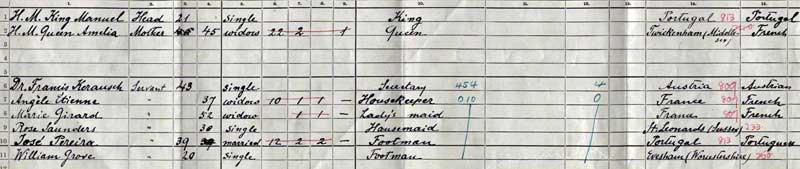 1. 2. 3. 4. 5. 6. 7. 8. 9. 10. 11. 12. 13. 14. 15.
H.M. King Manuel Head 21 Single King Portugal 813 Portugal
2 H.M. Queen Amelia Mother 45 widow 22 2 1 Queen Twickenham (Middlesex) French
6 Dr. Francis Kerausch Servant 43 Single Secretary 454 4 Austria 809 Austrian
7 Angèle Etienne " 37 widow 10 1 1 — Housekeeper 010 0 France 807 French
8 Marie Girard " 52 widow 1 1 — Lady's maid France 807 French
9 Rose Saunders " 30 Single Housemaid St. Leonards (Sussex) 233
10 José Pereira " 39 married 12 2 2 — Footman Portugal 813 Portuguese
11 William Grove " 20 Single Footman Evesham (Worcestershire)